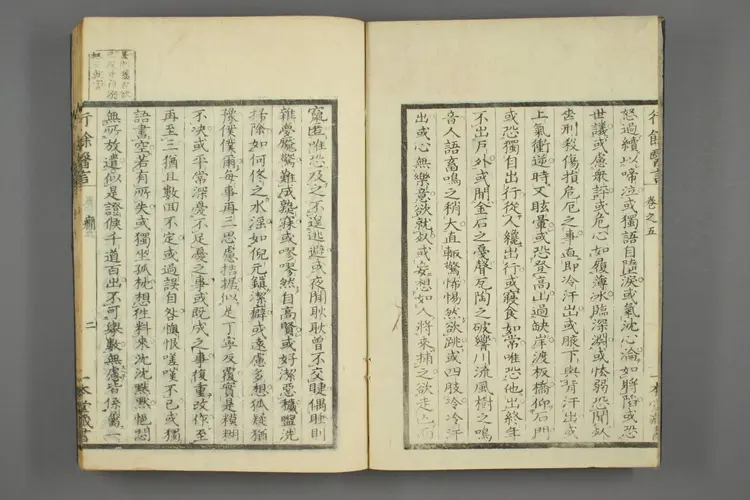 行餘醫言 卷之五
怒過續以啼泣或獨語自墮淚或氣沈心淪如將陷或恐
世議或慮衆評或危心如履薄冰臨深淵或怯弱恐聞
刑殺傷損危厄之事聞即冷汗出或腋下與背汗出或
上氣衝逆時又眩暈或恐登高山過缺岸渡板橋仰石門
或恐獨自出行從人纔出行或寢食如常唯恐他出終年
不出戶外或聞金石之憂聲瓦陶之破響川流風樹之鳴
音人語畜鳴之稍大直輒驚怖惕然欲跳或四肢冷冷汗
出或心無樂意欲就或妄想如人將來捕之欲走
竄匿唯恐及之不遑逃避或夜間耿耿曾不交睫偶睡則
雜夢魘驚難成熟寐或嘐嘐然自高賢或好潔惡穢盥洗
掃除如何佟之水淫如倪元鎮潔癖或遠慮多想狐疑猶
豫僕僕爾每事再三思慮拮据似是丁寧反覆實是模糊
不决或平常深憂不足憂之事或既成之事復重改作至
再至三猶且數回不定或過誤自咎悔恨嗟嘆不已或獨
語書空若有所失或獨坐孤枕想往料來沈沈默默悒悶
無所放遣似是證候千道百出不可擧數無慮皆係
行餘醫言 癇 二 一本堂藏書